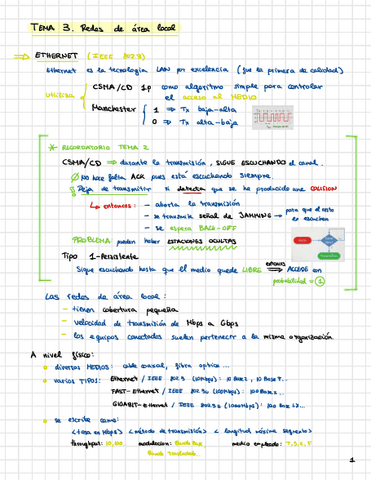 TEMA 3. Redes de área local
⇒ ETHERNET (IEEE 802.3)
Ethernet es la tecnología LAN por excelencia (fue la primera de calidad)
Utiliza CSMA/CD 1p como algoritmo simple para controlar
el acceso al MEDIO
Manchester 1 ⇒ Tx baja-alta
0 ⇒ Tx alta-baja
* RECORDATORIO TEMA 2
CSMA/CD ⇒ durante la transmisión, SIGUE ESCUCHANDO el canal.
No hace falta ACK pues está escuchando siempre.
Deja de transmitir si detecta que se ha producido una COLISION
↳ entonces: - aborta la transmisión
- se transmite señal de JAMMING → para que el resto
lo escuchen
- se espera BACK-OFF
PROBLEMA pueden haber ESTACIONES OCULTAS
Tipo 1-Persistente
Sigue escuchando hasta que el medio quede LIBRE entonces ⇒ ACCEDE con
probabilidad = 1
Las redes de área local:
- tienen cobertura pequeña
- velocidad de transmisión de Mbps a Gbps
- los equipos conectados suelen pertenecer a la misma organización
A nivel físico:
• diversos MEDIOS: cable coaxial, fibra óptica...
• varios TIPOS: Ethernet / IEEE 802.3 (10Mbps): 10 Base 2, 10 Base T...
FAST-Ethernet / IEEE 802.3u (100Mbps): 100 Base 2...
GIGABIT-Ethernet / IEEE 802.3z (1000Mbps): 100 Base LX...
• se escribe como:
<tasa en Mbps> <método de transmisión> < longitud máxima segmento>
throughput: 10, 100.. modulación: Banda Base medio empleado: T, 5, 2, F
Banda Trasladada..
1